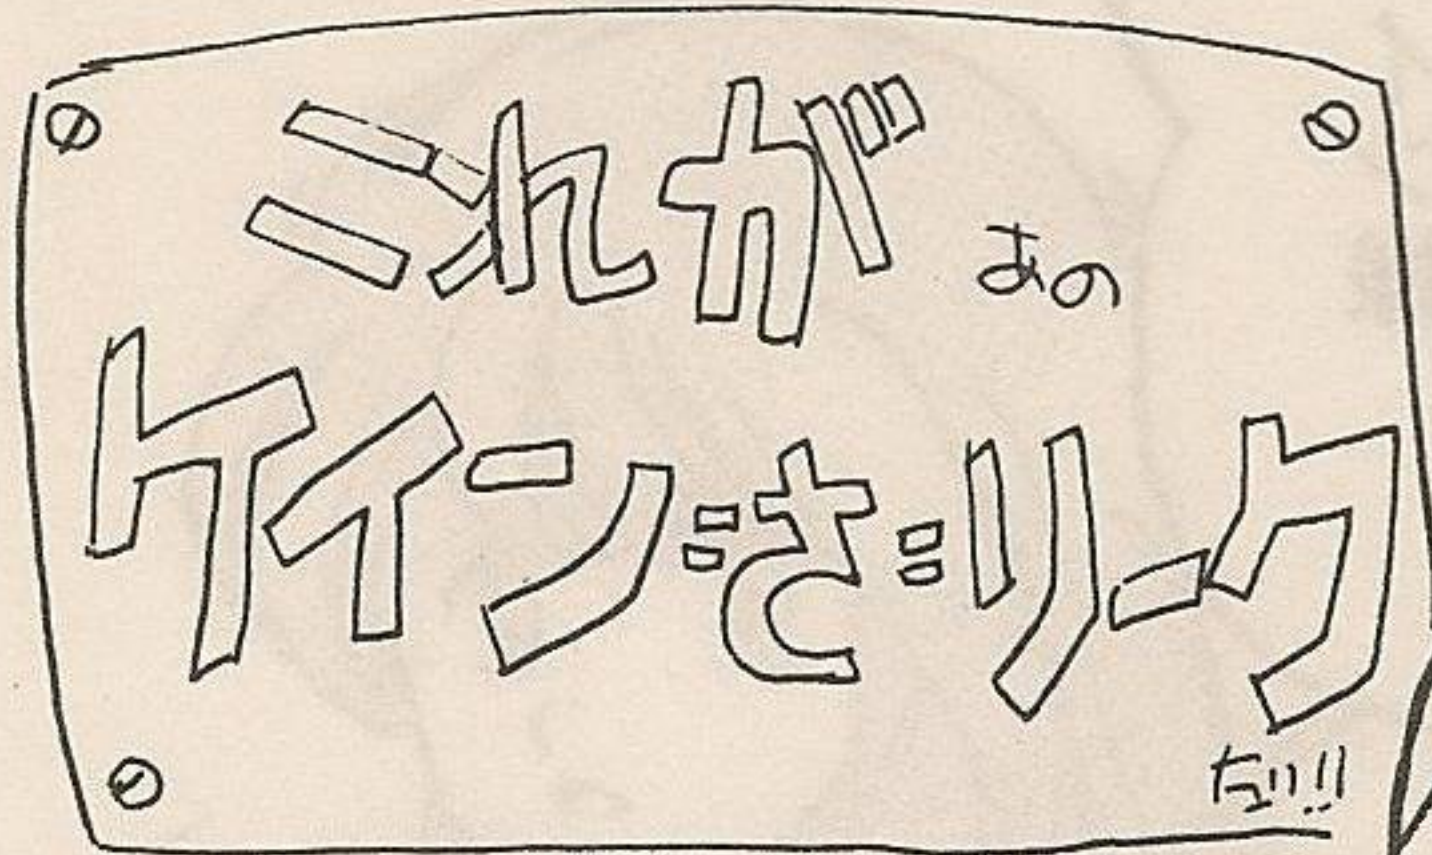 これが あの
ケイン=さ=リーク
だ!!